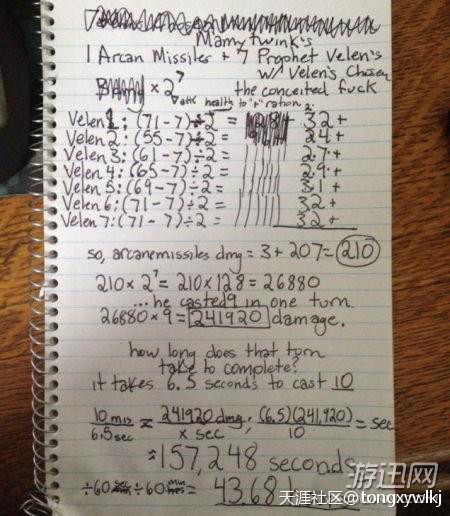 Mamytwink's
1 Arcan Missiles + 7 Prophet Velen's
w/ Velen's Chosen
× 2⁷ the conceited fuck
atk health to "+" ration
Velen 1: (71-7)÷2 = 32+
Velen 2: (55-7)÷2 = 24+
Velen 3: (61-7)÷2 = 27+
Velen 4: (65-7)÷2 = 29+
Velen 5: (69-7)÷2 = 31+
Velen 6: (71-7)÷2 = 32+
Velen 7: (71-7)÷2 = 32+
so, arcanemissiles dmg = 3 + 207 = 210
210 × 2⁷ = 210 × 128 = 26880
... he casted 9 in one turn.
26880 × 9 = 241920 damage.
how long does that turn
take to complete?
it takes 6.5 seconds to cast 10
10 mis / 6.5 sec = 241920 dmg / x sec ; (6.5)(241,920) / 10 = sec
≈ 157,248 seconds
÷60 ÷60 = 43.68
游迅网
天涯社区@tongxywlkj